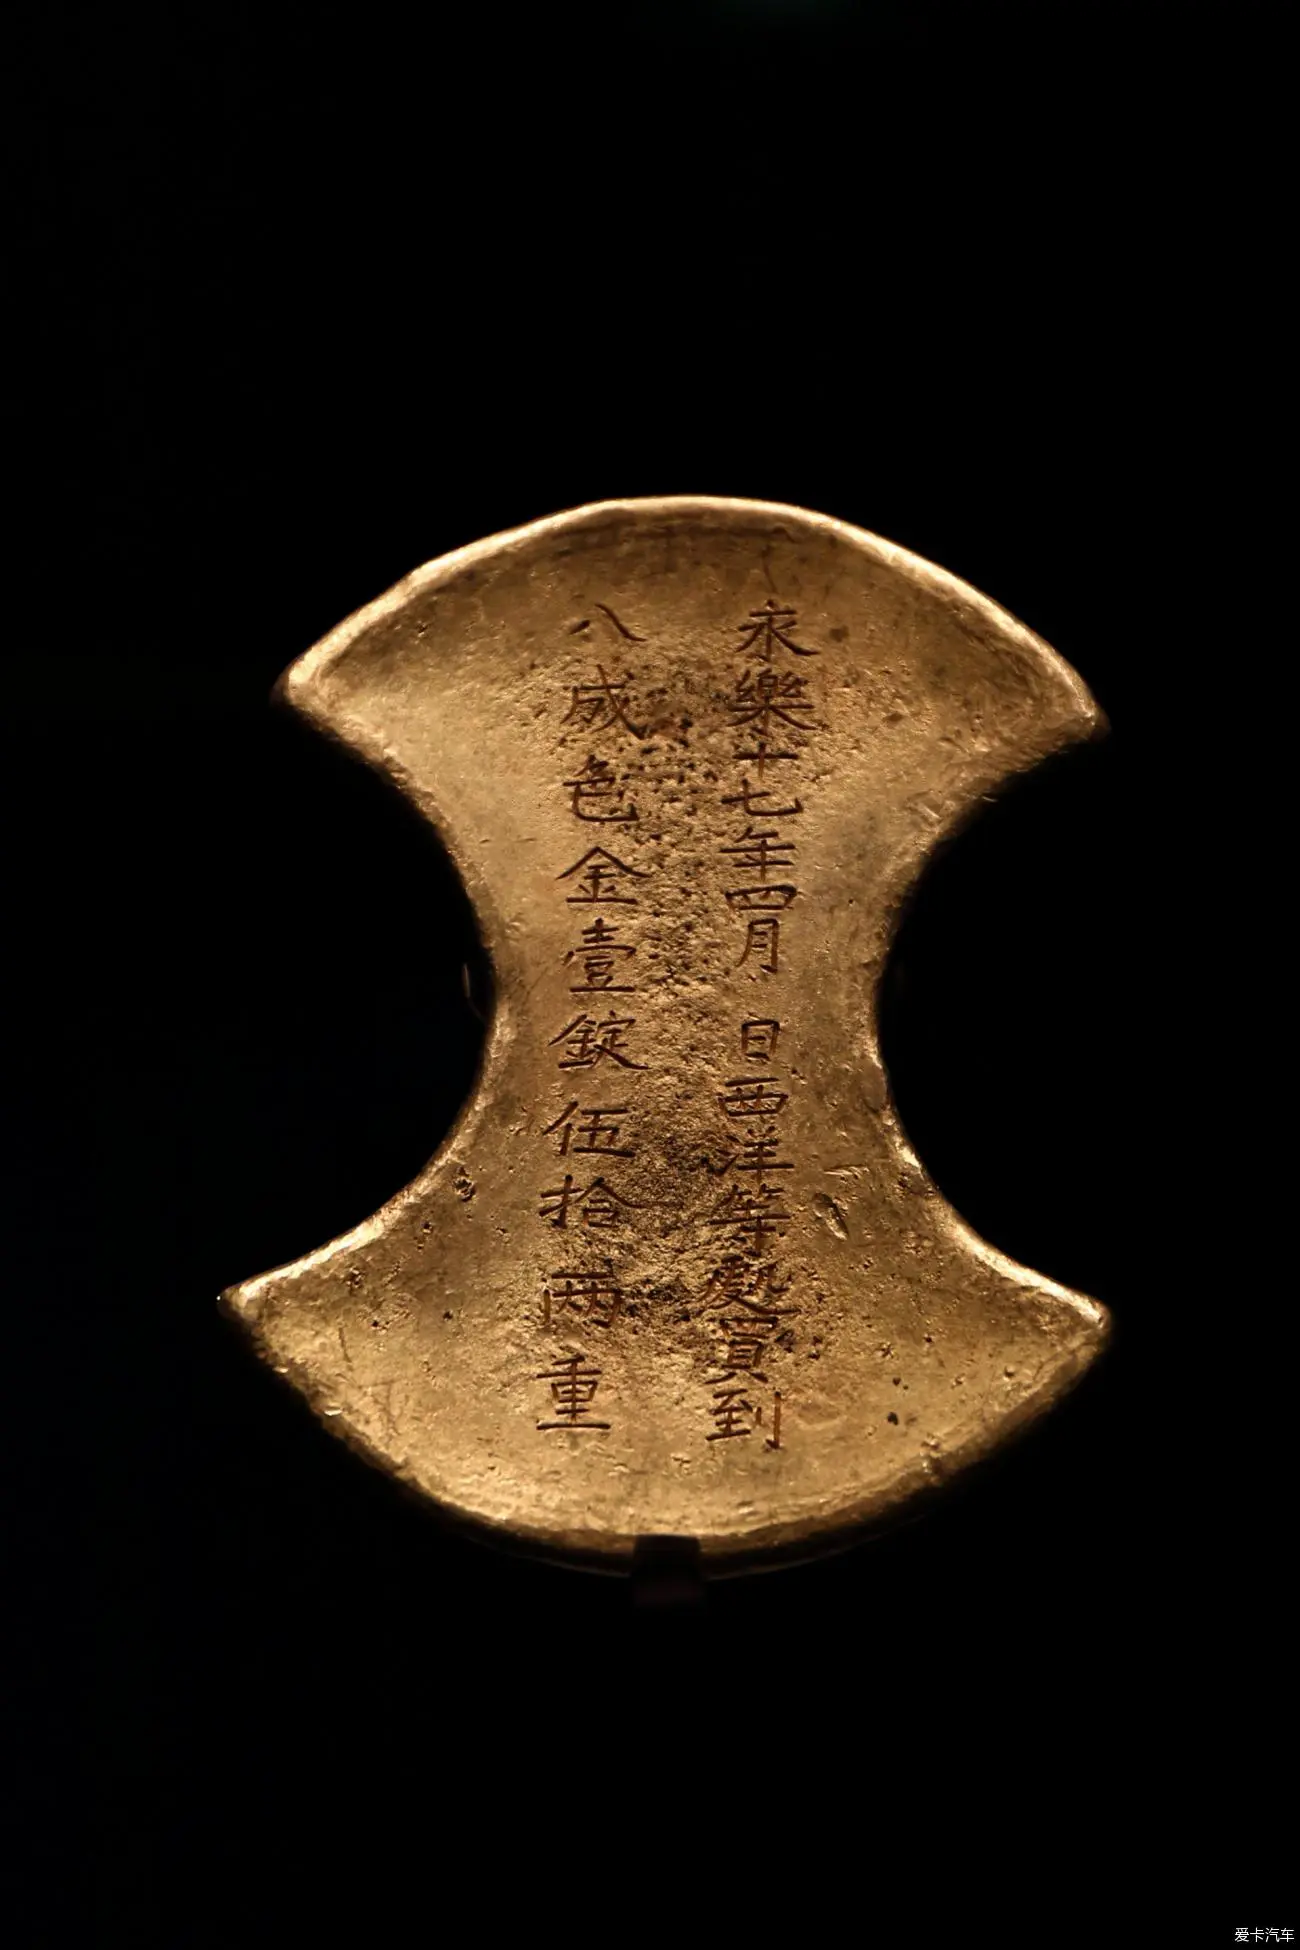 永樂十七年四月 日西洋等處買到
八成色金壹錠伍拾两重
爱卡汽车